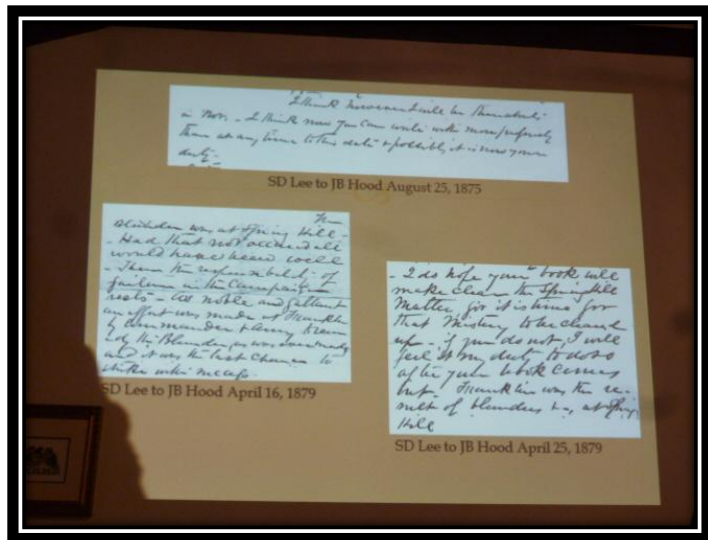 I think
in Nov. - I think now you can write with more
than at any time to this date & possibly it is now your
duty -
SD Lee to JB Hood August 25, 1875
The
blunder was at Spring Hill -
- Had that not occurred all
would have been well
- There the responsibility of
failure in the Campaign
rests - As noble and gallant
an effort was made at Franklin
by commander & Army to
the Blunder, as was ever made
and it was the last chance to
strike
SD Lee to JB Hood April 16, 1879
- I do hope your book will
make clear the Spring Hill
Matter, for it is time for
that Mistery to be cleared
up - if you do not, I will
feel it my duty to do so
after your book comes
out - Franklin was the re-
sult of blunders at Spring
Hill
SD Lee to JB Hood April 25, 1879